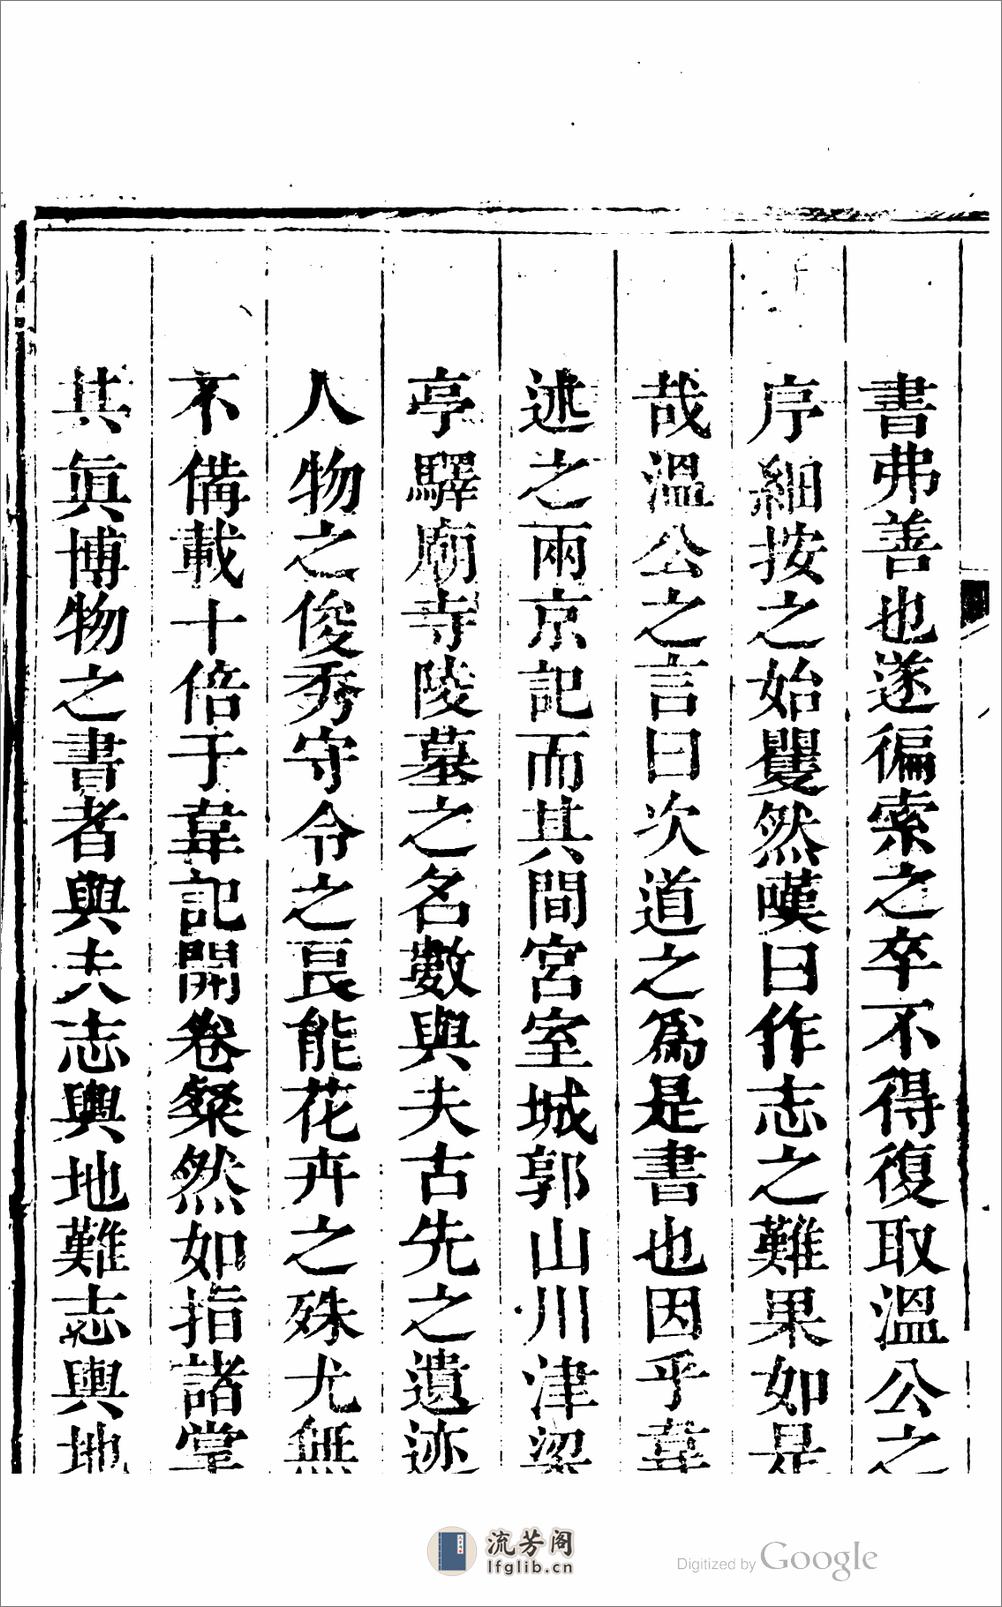 書弗善也遂徧索之卒不得復取溫公之
序細按之始矍然嘆曰作志之難果如是
哉溫公之言曰次道之爲是書也因乎韋
述之兩京記而其間宮室城郭山川津梁
亭驛廟寺陵墓之名數與夫古先之遺迹
人物之俊秀守令之良能花卉之殊尤無
不備載十倍于韋記開卷粲然如指諸掌
其眞博物之書者與夫志輿地難志輿地
流芳阁
lfglib.cn
Digitized by Google